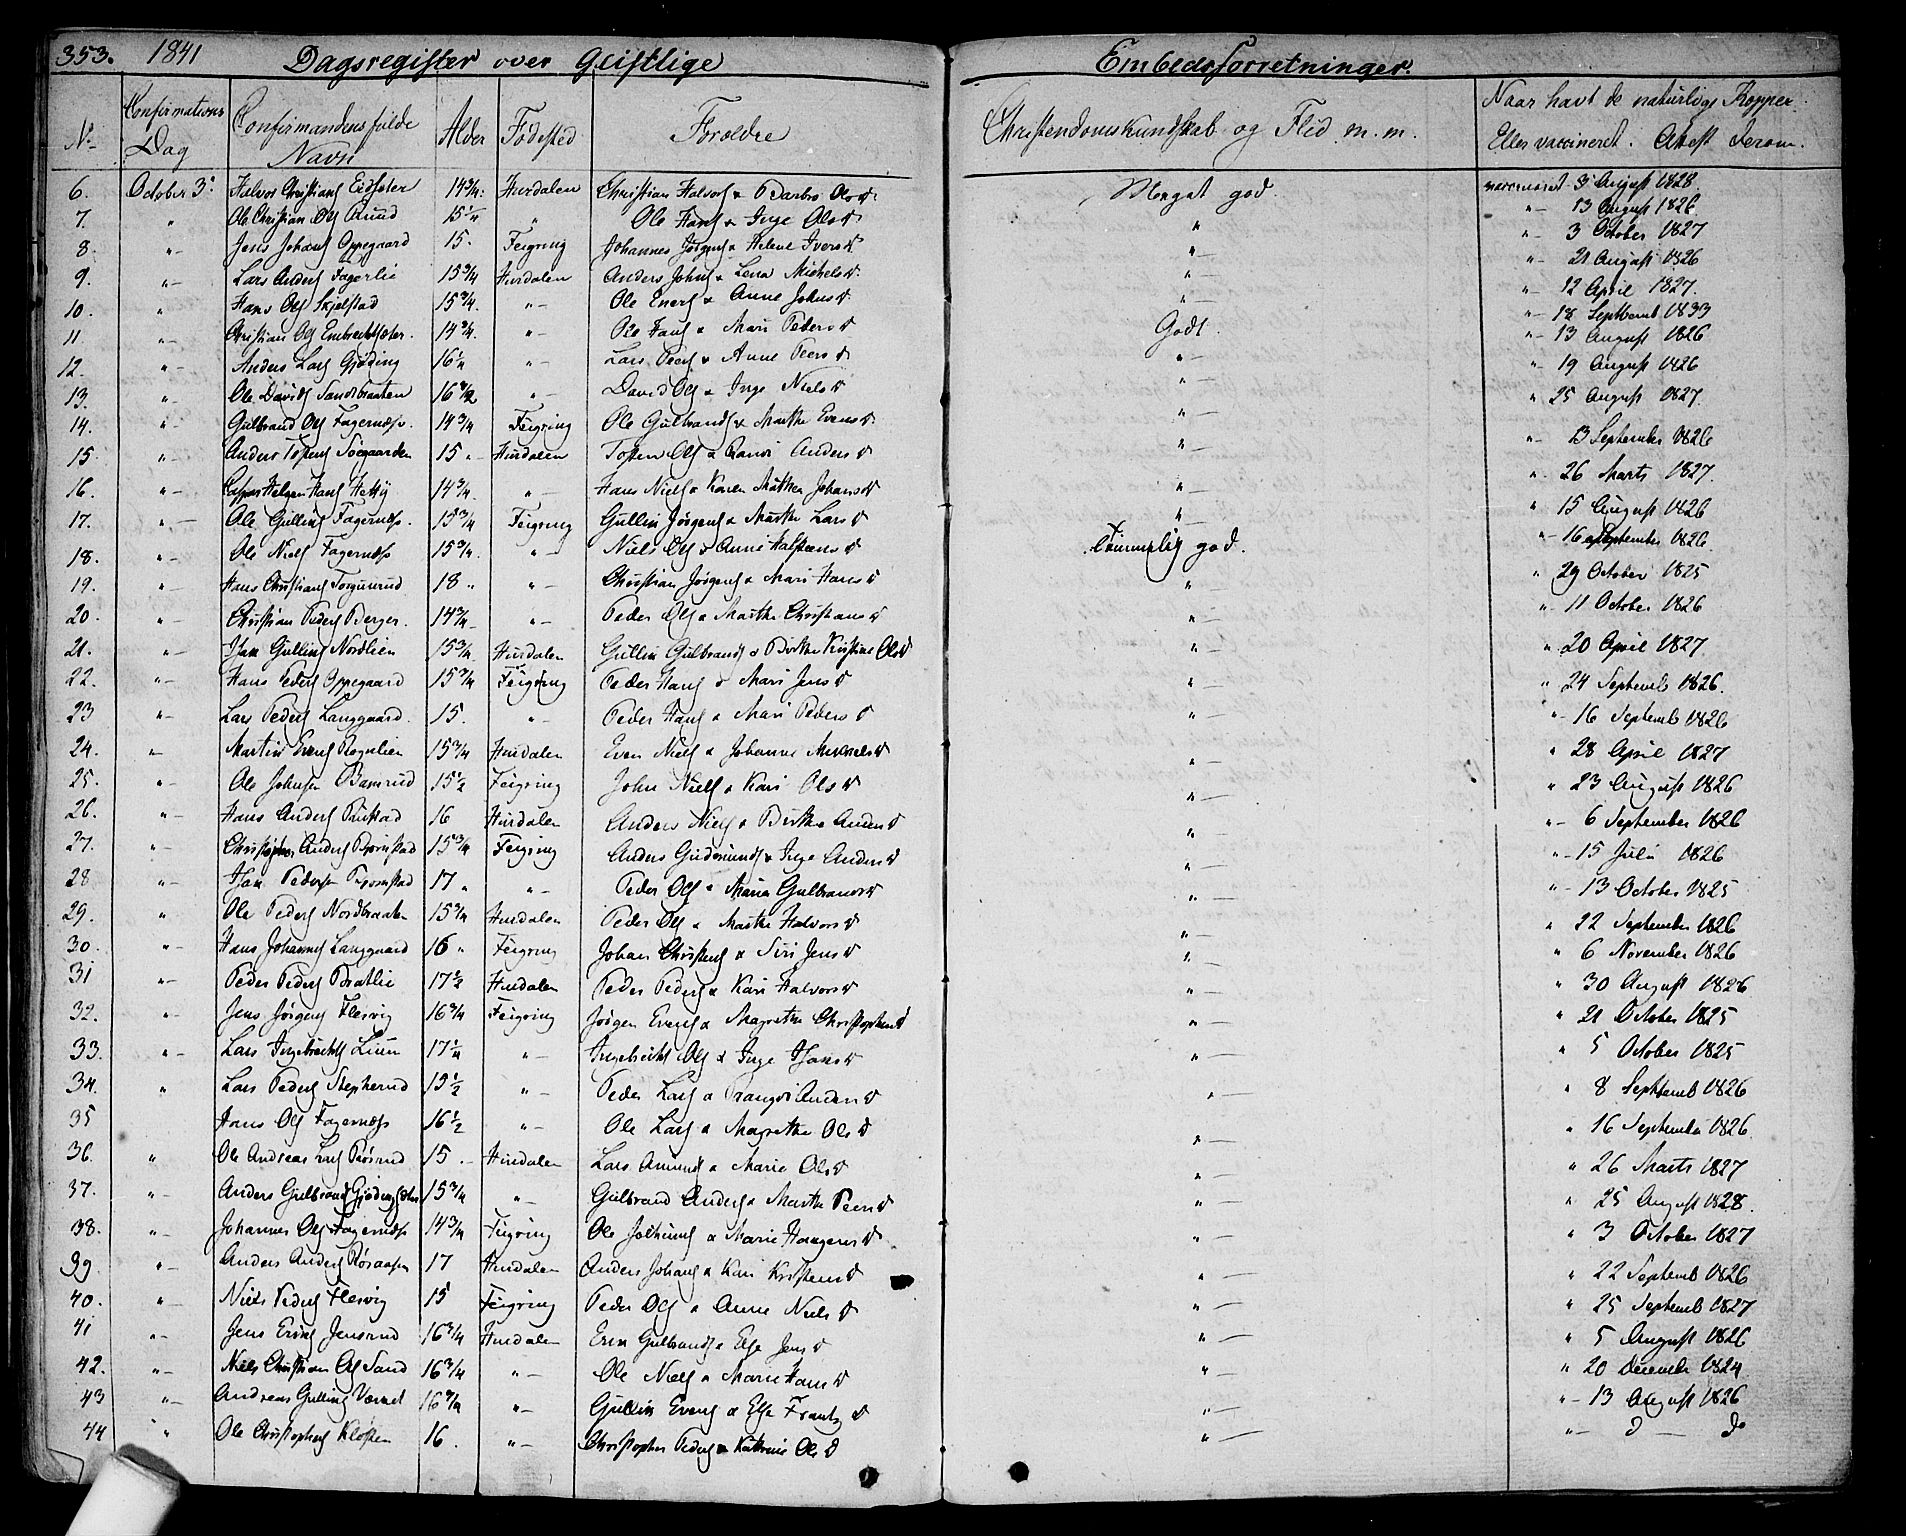 353. 1841 Dagsregister over Geistlige Embedsforretninger.
No Confirmations Dag Confirmandens fulde Navn Alder Fødested Forældre Christendomskundskab og Flid m. m. Naar havt de naturlige Kopper Eller vaccineret. Attest derom.
6. October 3. Halvor Christians 14 3/4. Hurdalen Christian Halvors & Barbro Olsd Meget god. vaccineret 3 August 1828
7. " Ole Christian Ols Ruud 15 1/4 " Ole Hans & Inge Olsd " " 13 August 1826
8. " Jens Johans Oppegaard 15. Feigring Johannes Jørgens & Helene Iversd " " 3 October 1827
9. " Lars Anders Fagerlie 15 3/4 Hurdalen Anders Johns & Lena Michelsd. " " 21 August 1826
10. " Hans Ols Skjelstad 15 3/4. " Ole Eners & Anne Johnsd " " 12 April 1827.
11. " Christian Ols 14 3/4. " Ole Hans & Mari Pedersd Godt. " 18 Septemb 1833
12. " Anders Lars Gjøding 16 1/4 " Lars Peers & Anne Peersd " " 13 August 1826
13. " Ole Davids Sandbraaten 16 1/2 " David Ols & Inge Nielsd " " 19 August 1826
14. " Gulbrand Ols Fagernæss. 14 3/4 Feigring Ole Gulbrands & Marthe Evensd " " 25 August 1827.
15. " Anders Tostens Soegaarden 15 " Hurdalen Tosten Ols & Randi Andersd " " 13 September 1826
16. " Hans 14 3/4. " Hans Niels & Karen Mathea Johansd " " 26 Marts 1827.
17. " Ole Gullins Fagernæss. 15 3/4 Feigring Gullin Jørgens & Marthe Larsd " " 15 August 1826
18. " Ole Niels Fagernæss 15 3/4. " Niels Ols & Anne Halstensd Temmelig god. " 16 September 1826.
19. " Hans Christians Torgunrud 18 " " Christian Jørgens & Mari Hansd " " 29 October 1825
20. " Christian Peders Berger. 14 3/4 " Peder Ols & Marthe Christiansd " " 11 October 1826
21. " Gullins Nordlien 15 3/4. Hurdalen Gullin Gulbrands & Birthe Kirstine Olsd " " 20 April 1827
22. " Hans Peders Oppegaard 15 3/4 Feigring Peder Hans & Mari Jensd " " 24 Septemb 1826.
23 " Lars Peders Langgaard. 15. " Peder Hans & Mari Pedersd " " 16 Septemb 1826
24. " Martin Evens Rognlien 15 3/4 Hurdalen Even Niels & Johanne " " 28 April 1827
25. " Ole Johnsen Bamrud 15 1/2 Feigring John Niels & Kari Olsd " " 23 August 1826
26. " Hans Anders 16 Hurdalen Anders Niels & Birthe Andersd " " 6 September 1826
27. " Anders Bjørnstad 15 3/4 Feigring Anders Gudmunds & Inge Andersd " " 15 Juli 1826
28 " Pedersen Bjørnstad 17 " " Peder Ols & Maria Gulbrandsd " " 13 October 1825
29. " Ole Peders Nordbraaten 15 3/4 Hurdalen Peder Ols & Marthe Halvorsd " " 22 September 1826
30. " Hans Johannes Langgaard 16 " Feigring Johan Christens & Siri Jensd " " 6 November 1826
31 " Peder Peders Bratlie 17 1/2 Hurdalen Peder Peders & Kari Halvorsd " " 30 August 1826
32. " Jens Jørgens Flesvig 16 3/4 Feigring Jørgen Evens & Magrethe Christophersd " " 21 October 1825
33. " Lars Ingebrechts Liun 17 1/4 " Ingebricht Ols & Inge " " 5 October 1825
34. " Lars Peders Stephsrud 15 1/2 " Peder Lars & Andersd " " 8 Septemb 1826
35 Hans Ols Fagernæss 16 1/2 " Ole Lars & Magrethe Olsd " " 16 September 1826.
36. " Ole Andreas Lars Røsrud 15 " Hurdalen Lars Amunds & Marie Olsd " " 26 Marts 1827
37. " Anders Gulbrands 15 3/4 " Gulbrand Anders & Marthe Peersd " " 25 August 1828.
38. " Johannes Ols Fagernæss 14 3/4 Feigring Ole & Marie " " 3 October 1827
39 " Anders Anders Røsaasen 17 Hurdalen Anders Johans & Kari Kristensd " " 22 Septemb 1826
40. " Niels Peders Flesvig 15 Feigring Peder Ols & Anne Nielsd " " 25 Septemb 1827
41 " Jens Erichs Jensrud 16 3/4 Hurdalen Erik Gulbrands & Else Jensd " " 5 August 1826
42. " Niels Christian Ols Sand 16 3/4 " Ole Niels & Marie Hansd " " 20 December 1824
43 " Andreas Gullins 16 3/4 " Gullin Evens & Else Frantzd " " 13 August 1826
44 " Ole Christophers Kløften 16. " Christopher Peders & Kathrine Olsd " " d do